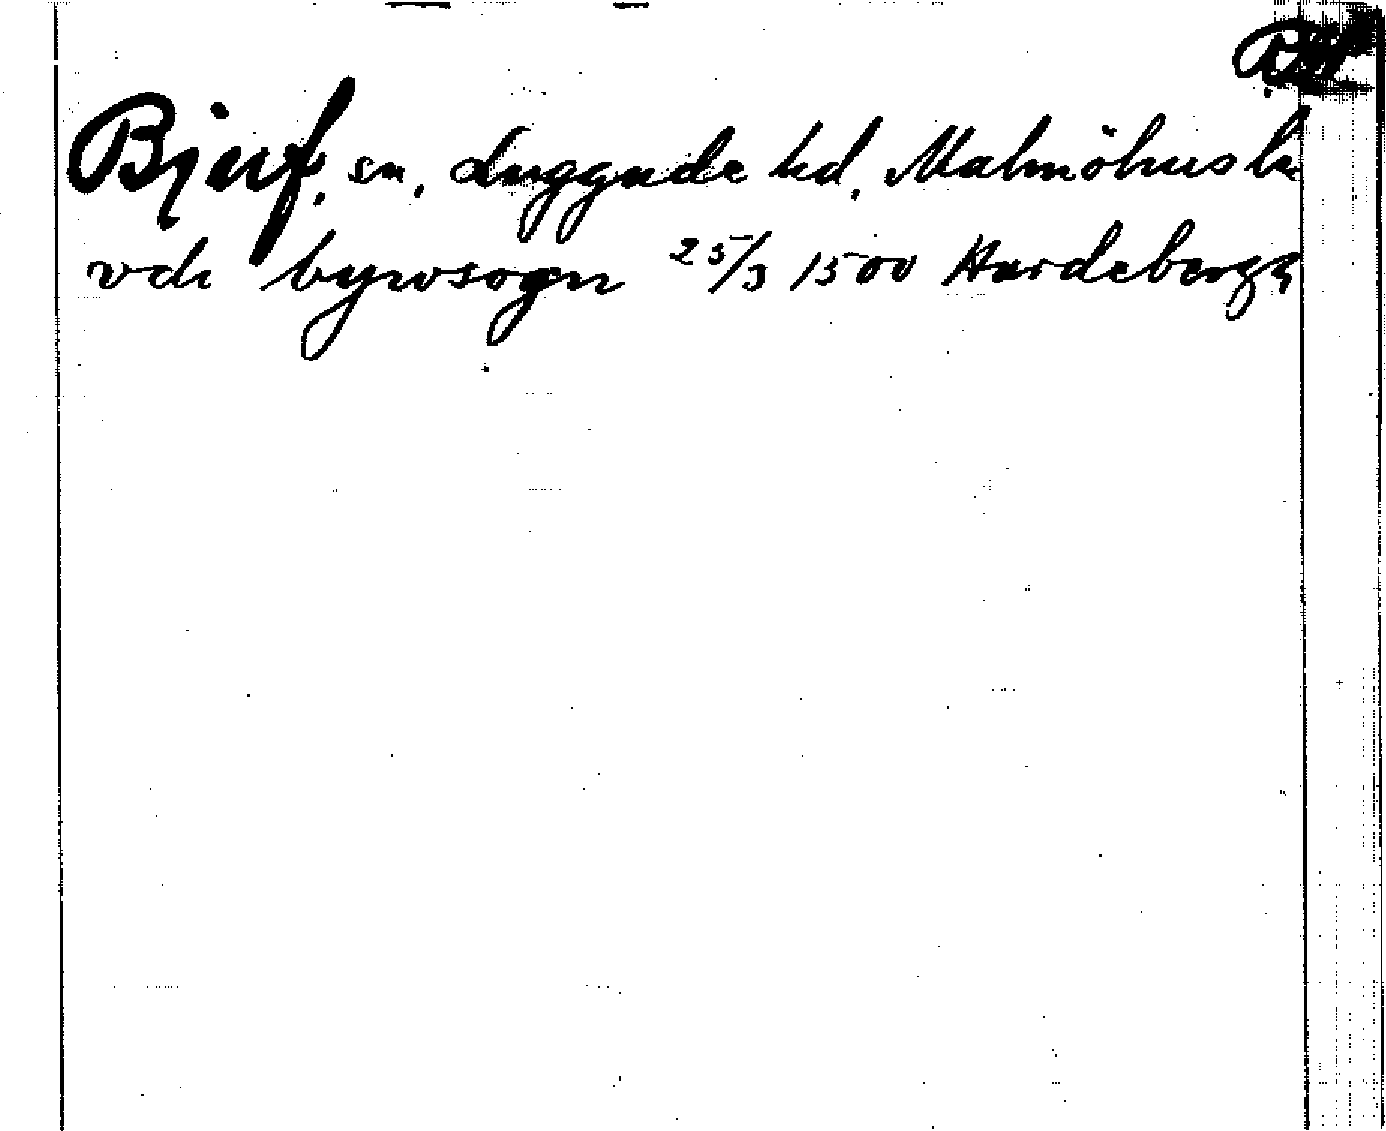 Bjuf, sn, Luggude hd, Malmöhus län
vdr bywsogn 25/3 1500 Hardeberga